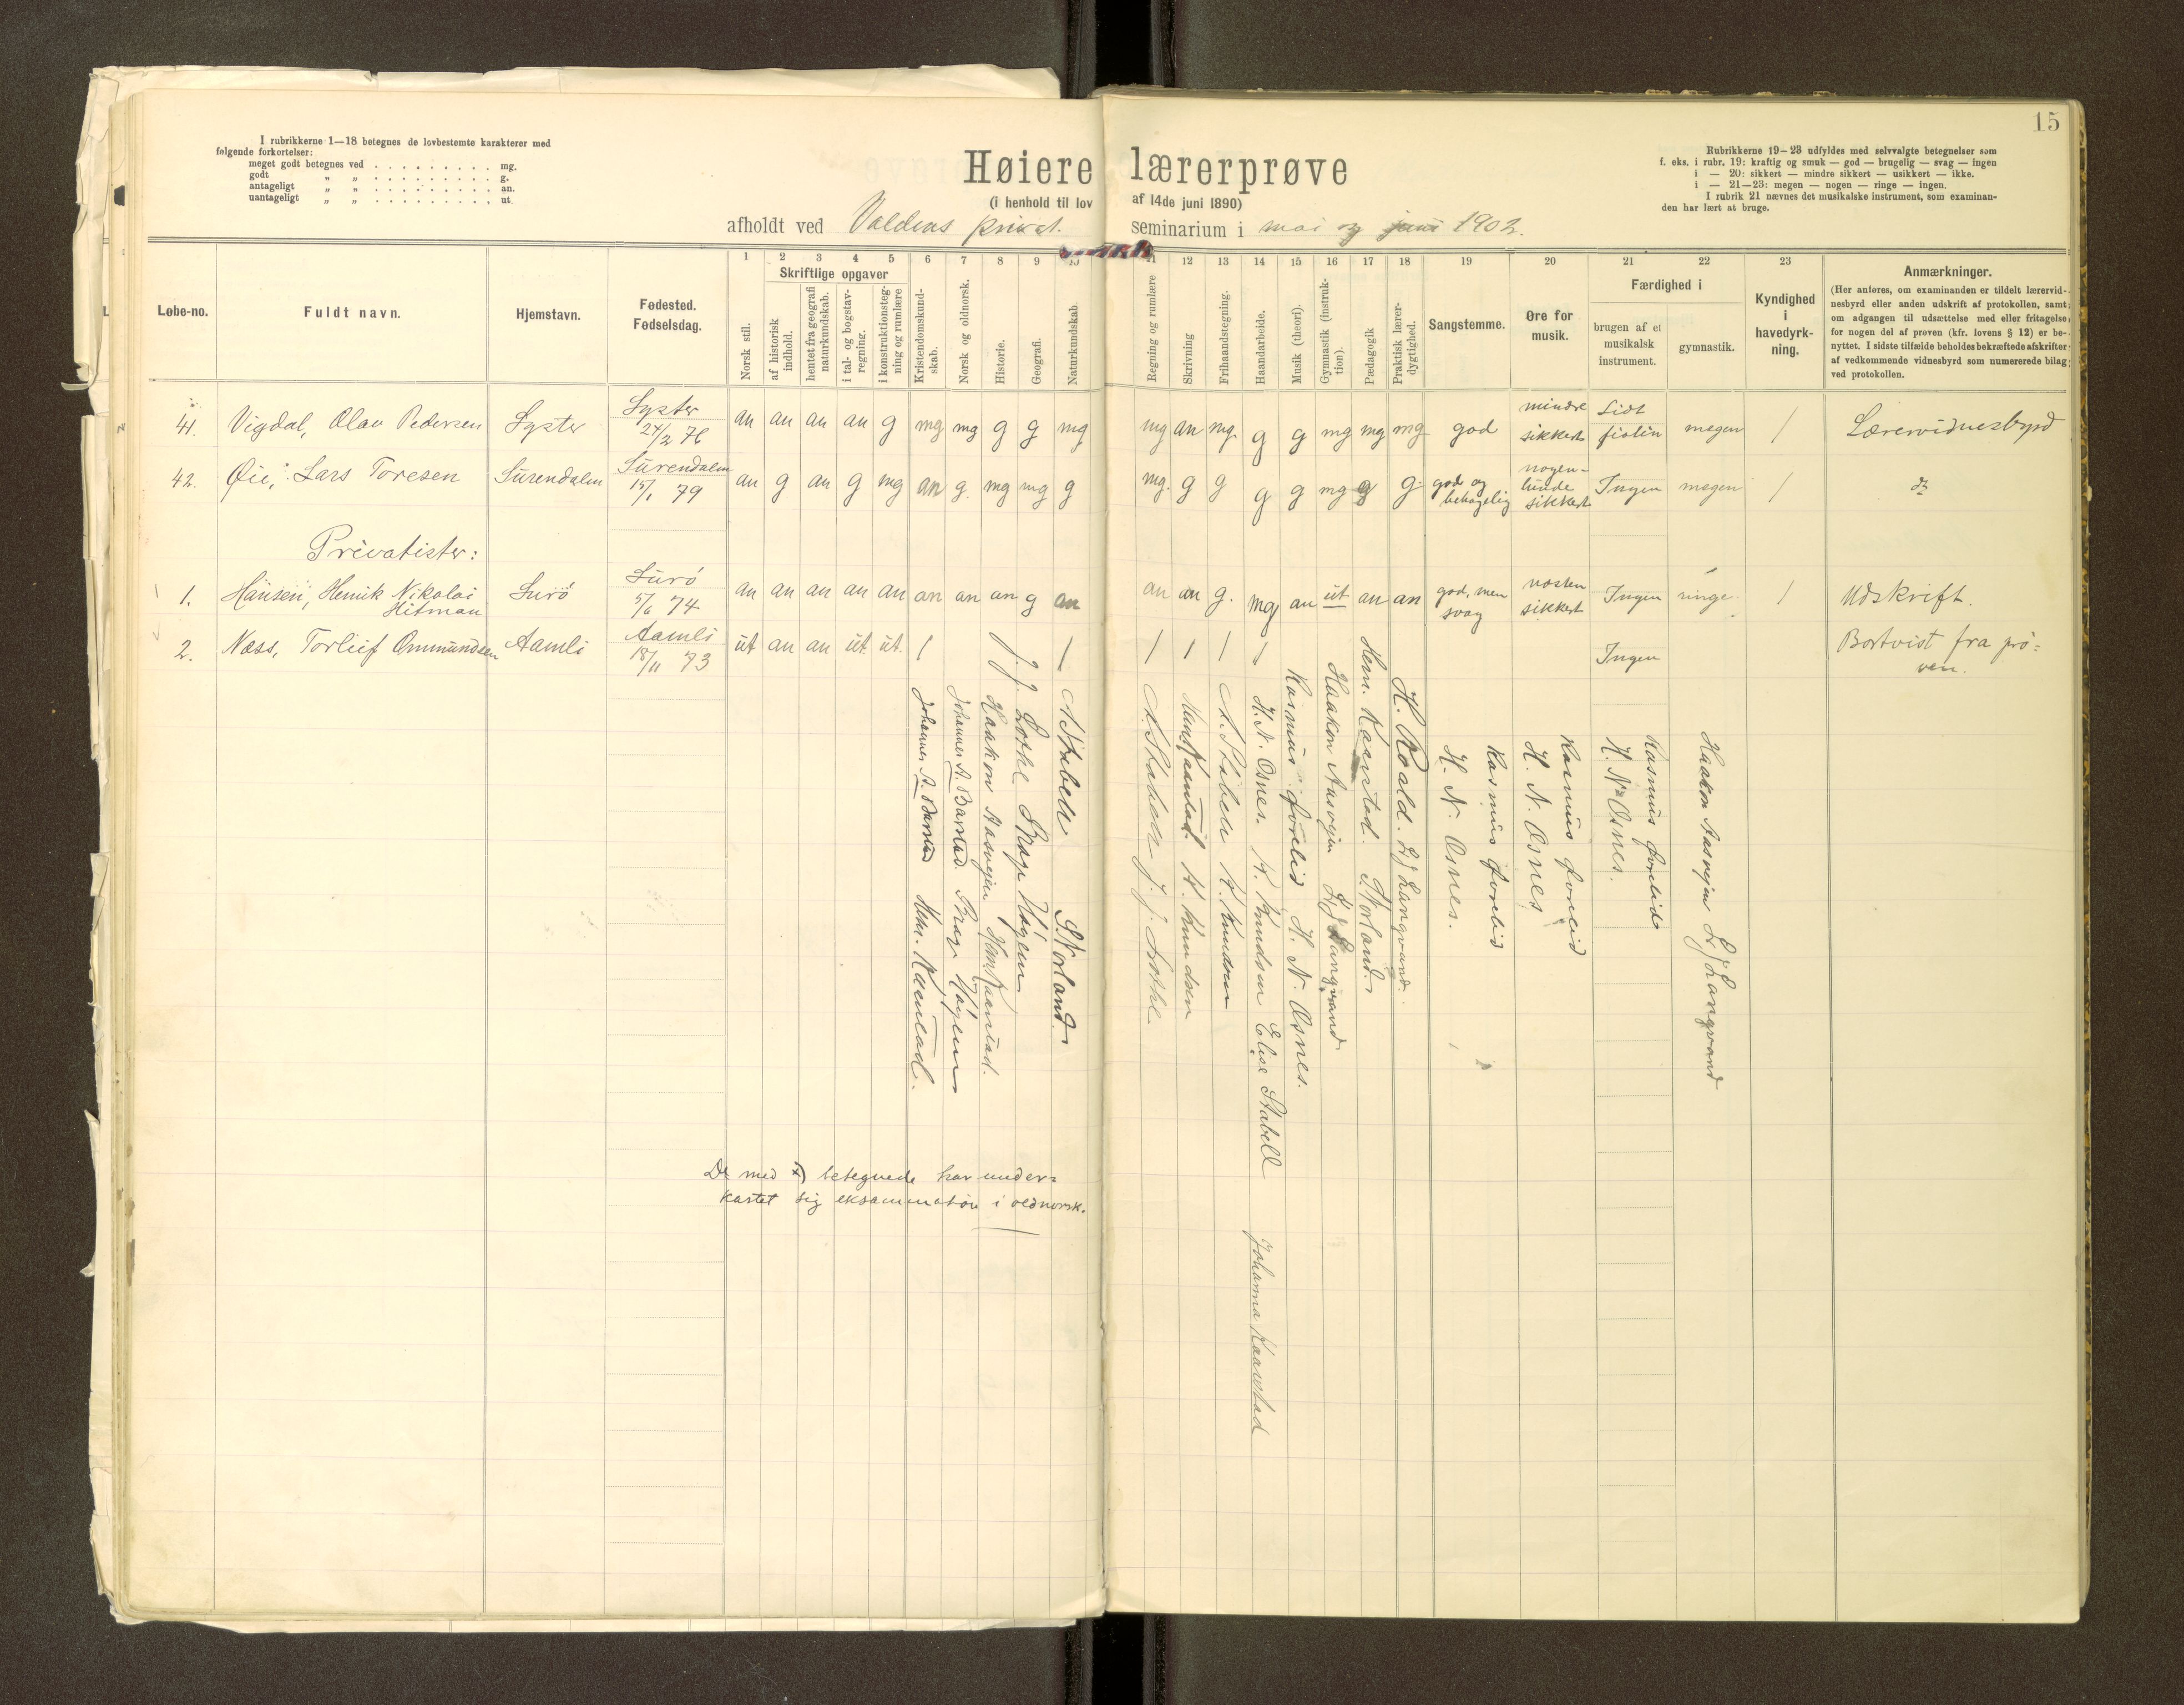 15
I rubrikkerne 1—18 betegnes de lovbestemte karakterer med
følgende forkortelser:
meget godt betegnes ved . . . . . . . . . . mg.
godt „ „ . . . . . . . . . . g.
antageligt „ „ . . . . . . . . . . an.
uantageligt „ „ . . . . . . . . . . ut.
Høiere lærerprøve
(i henhold til lov af 14de juni 1890)
afholdt ved Voldens privat. seminarium i mai og juni 1902.
Rubrikkerne 19—23 udfyldes med selvvalgte betegnelser som
f. eks. i rubr. 19: kraftig og smuk — god — brugelig — svag — ingen
i — 20: sikkert — mindre sikkert — usikkert — ikke.
i — 21—23: megen — nogen — ringe — ingen.
I rubrik 21 nævnes det musikalske instrument, som examinan-
den har lært at bruge.
1 2 3 4 5 6 7 8 9 10 11 12 13 14 15 16 17 18 19 20 21 22 23
Løbe-no.
Fuldt navn.
Hjemstavn.
Fødested.
Fødselsdag.
Norsk stil.
Skriftlige opgaver
af historisk
indhold.
hentet fra geografi
naturkundskab.
i tal- og bogstav-
regning.
i konstruktionsteg-
ning og rumlære
Kristendomskund-
skab.
Norsk og oldnorsk.
Historie.
Geografi.
Naturkundskab.
Regning og rumlære
Skrivning
Frihaandstegning.
Haandarbeide.
Musik (theori).
Gymnastik (instruk-
tion).
Pædagogik
Praktisk lærer-
dygtighed.
Sangstemme.
Øre for
musik.
Færdighed i
brugen af et
musikalsk
instrument.
gymnastik.
Kyndighed
i
havedyrk-
ning.
Anmærkninger.
(Her anføres, om examinanden er tildelt lærervid-
nesbyrd eller anden udskrift af protokollen, samt
om adgangen til udsættelse med eller fritagelse
for nogen del af prøven (kfr. lovens § 12) er be-
nyttet. I sidste tilfælde beholdes bekræftede afskrifter
af vedkommende vidnesbyrd som numererede bilag
ved protokollen.
41. Vigdal, Olav Pedersen Lyster Lyster 27/2 76 an an an an g mg mg g g mg mg an mg. g g mg mg mg god mindre sikkert Lidt fiolin megen / Lærervidnesbyrd
42. Øie, Lars Toresen Surendalen Surendalen 15/1 79 an g an g mg an g. mg mg g mg. g g g g mg g g god og behagelig nogen- lunde sikkert Ingen megen / do
Privatister:
1. Hansen, Henrik Nikolai Hitman Surö Surö 5/6 74 an an an an an an an an g an an an g. mg an ut an an god, men svag næsten sikkert Ingen ringe. / Udskrift.
2. Næss, Torleif Ommundsen Aamli Aamli 18/11 73 ut an an ut. ut. / / / / / / Ingen Bortvist fra prö-
ven.
Johannes A. Barstad Hen. Kaarstad.
Johannes A. Barstad. Brage Högeim
Haakon Aasvejen Hen. Kaarstad.
J. J. Lothe Brage Högeim
A Stabell S. Norland.
A. Stabell J. J. Lothe
Hen. Kaarstad. A. Knudsen
A. Stabell A. Knudsen
H. N. Osnes. A. Knudsen Elise Stabell Johanna Kaarstad
Rasmus Gorelid H. N. Osnes.
Haakon Aasvejen L J Langvand
Hen. Kaarstad. S. Norland.
H. Roald. L J Langvand.
Rasmus Gorelid
H. N. Osnes.
Rasmus Gorelid
H. N. Osnes
Rasmus Gorelid
H. N. Osnes.
Haakon Aasvejen L J Langvand
De med x) betegnede har under-
kastet sig eksamination i oldnorsk.